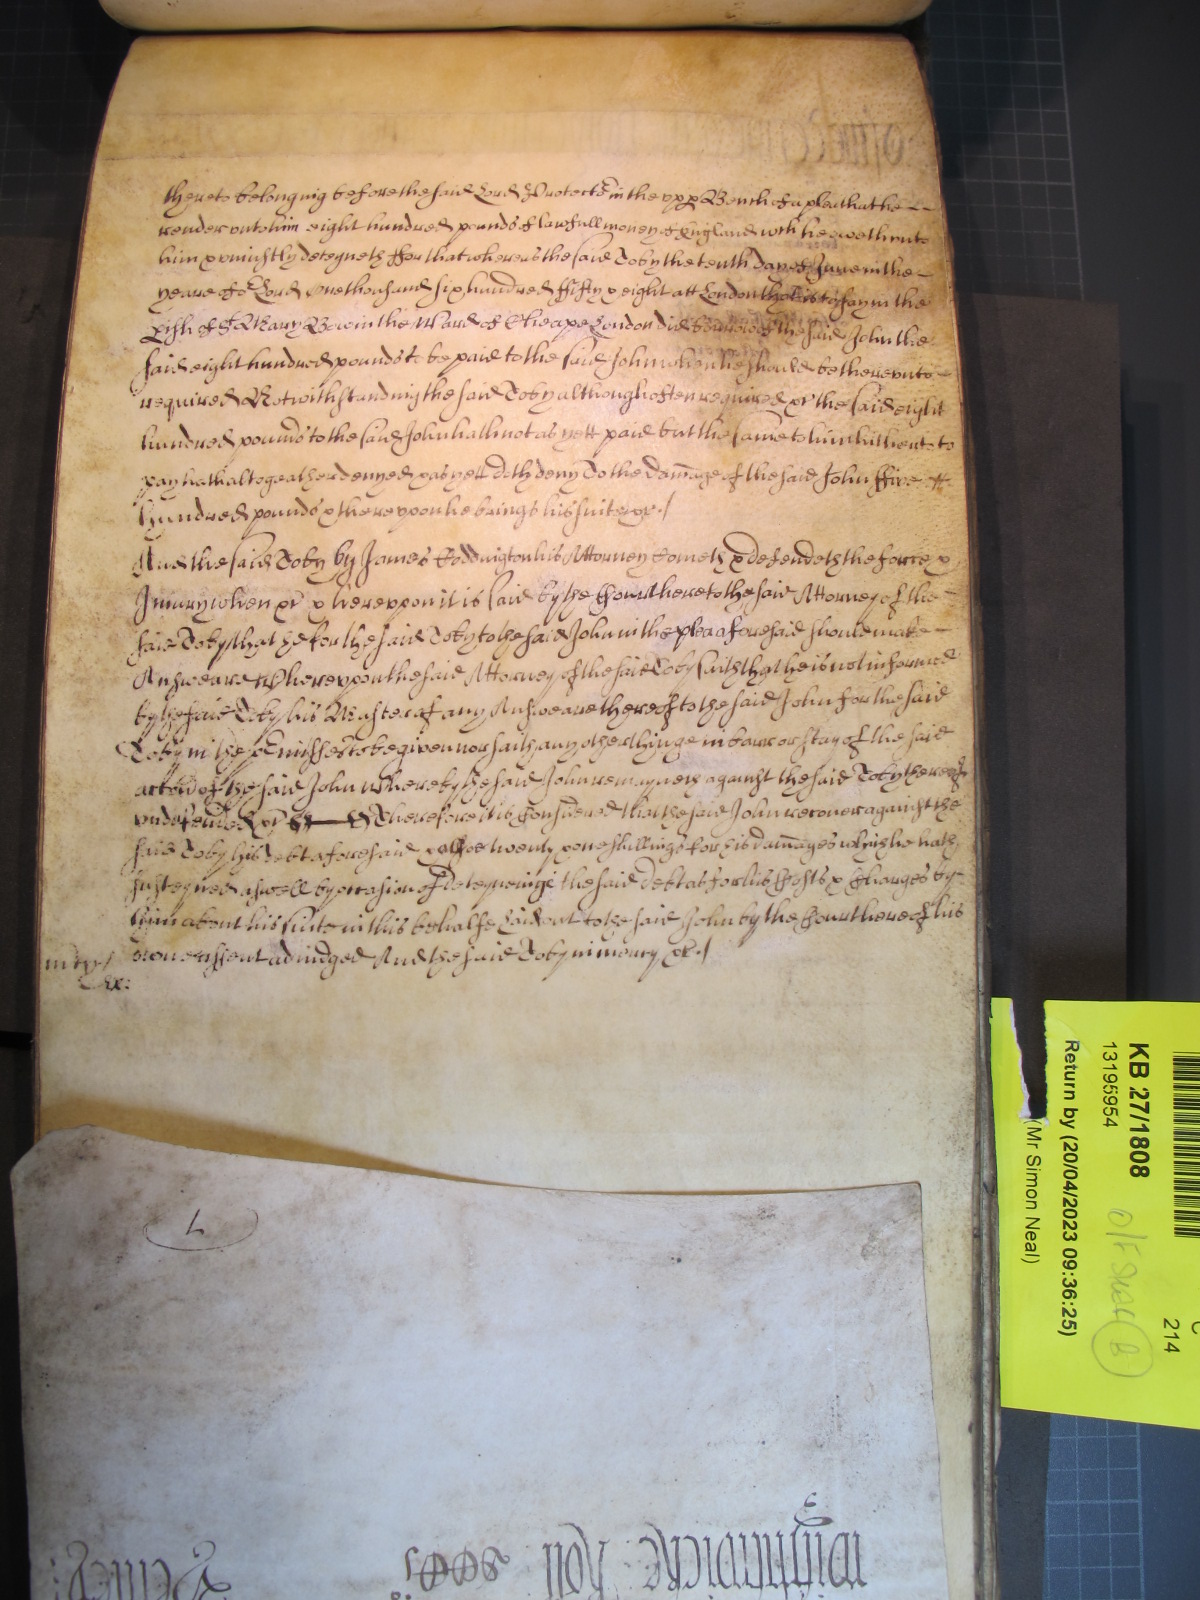 thereto belonging before the said Lord Protector in the vpp Bench of a plea that he
render vnto him eight hundred pounds of lawfull money of England wch he oweth vnto
him & vniustly deteyneth ffor that whereas the said Toby the tenth day of June in the
yeare of or Lord one thousand six hundred ffifty & eight att London that is to say in the
pish of St Mary Bow in the Ward of Cheape London did borrow of the said John the
said eight hundred pounds to be paid to the said John when he should be therevnto
required Notwithstanding the said Toby although often required &c the said eight
hundred pounds to the said John hath not as yett paid but the same to him hitherto to
pay hath altogeather denyed & as yett doth deny To the damage of the said John ffive
hundred pounds & therevpon he brings his suite &c./
And the said Toby by James Coddington his Attorney cometh & defendeth the force &
Injury when &c & herevpon it is said by the Court here to the said Attorney of the
said Toby that he for the said Toby to the said John in the plea aforesaid should make
Answeare Wherevpon the said Attorney of the said Toby saith that he is not informed
by the said Toby his Master of any Answeare thereof to the said John for the said
Toby in the pmisses to be given nor saith any other thinge in barr or stay of the said
accon of the said John Whereby the said John remayneth against the said Toby thereof
vndefended &c Therefore it is Considered that the said John recover against the
said Toby his debt aforesaid & alsoe twenty & one shillings for his damages which he hath
susteyned aswell by occasion of deteyninge the said debt as for his Costs & Charges by
him about his suite in this behalfe laid out to the said John by the Court here of his
owne assent adiudged And the said Toby in mercy &c./
m cy/
Ex:
7
KB 27/1808
13195954
Return by (20/04/2023 09:36:25)
(Mr Simon Neal)
214
B
Roll